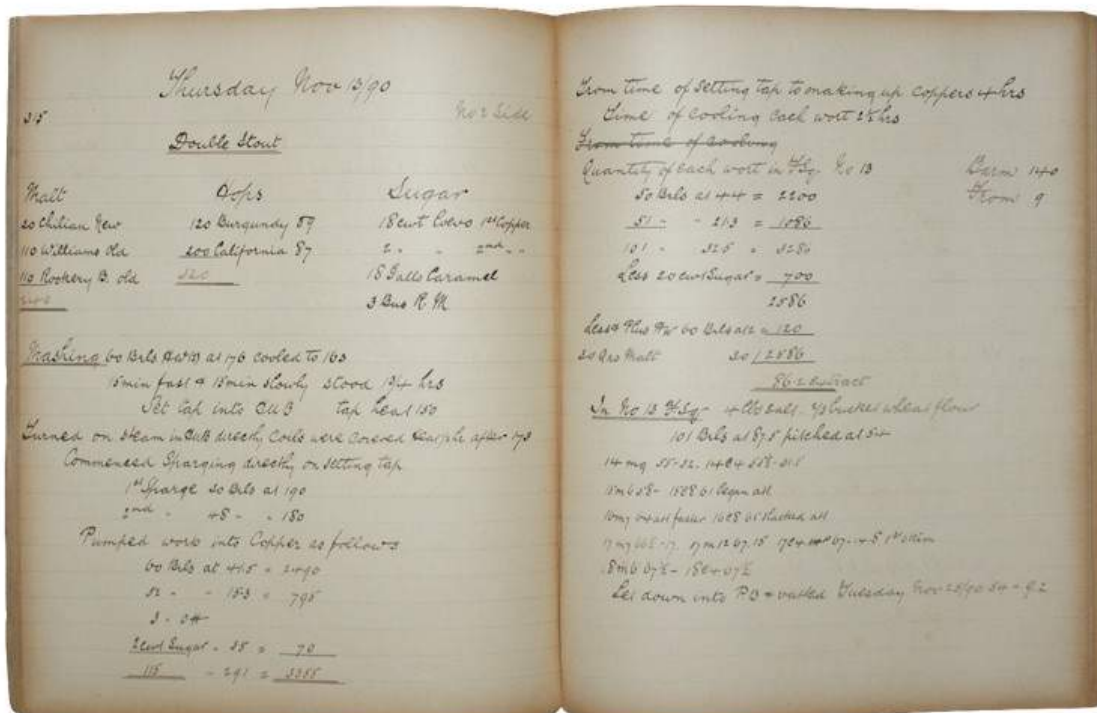 Thursday Nov 13/90
315 No 2 Side
Double Stout
Malt Hops Sugar
20 Chilian New 120 Burgundy 89 18 cwt Coevo 1st Copper
110 Williams Old 200 California 87 2 " " 2nd " "
110 Rookery B. old 320 18 Galls Caramel
240 3 Bus R M
Mashing 60 Brls at 176 cooled to 163
15 min fast & 15 min slowly stood 1 3/4 hrs
Set tap into tap heat 150
Turned on steam in directly Coils were covered after 173
Commenced Sparging directly on setting tap
1st Sparge 30 Brls at 190
2nd " 48 " " 180
Pumped wort into Copper as follows
60 Brls at 41.5 = 2490
52 " " 15.3 = 795
3 -
2 cwt Sugar - 35 = 70
115 - 29.1 = 3355
From time of Setting tap to making up Coppers 4 hrs
Time of Cooling Each wort 2½ hrs
From time of Cooling
Quantity of each wort in FSq No 13 Barm 140
50 Brls at 44 = 2200 From 9
51 " - 21.3 = 1086
101 - 32.5 = 3286
Less 20 cwt Sugar = 700
2586
Less Plus 60 Brls at 2 = 120
30 Qrs Malt 30 / 2586
86.2 Extract
In No 13 FSq 4 lbs Salt. 1/3 bucket wheat flour
101 Brls at 87.5 pitched at 54
14 m 9 55-32. 14 e 4 55½-31.5
15 m 6 58 - 15 e 8 61 began att
16 m 7 64 att faster 16 e 8 65 slacked att
17 m 7 66½-17. 17 m 12 67.15 17 e 4 67-14.5 1st skim
18 m 6 67½ - 18 e 4 67½
Let down into PB & vatted Tuesday Nov 25/90 54 - 9.2